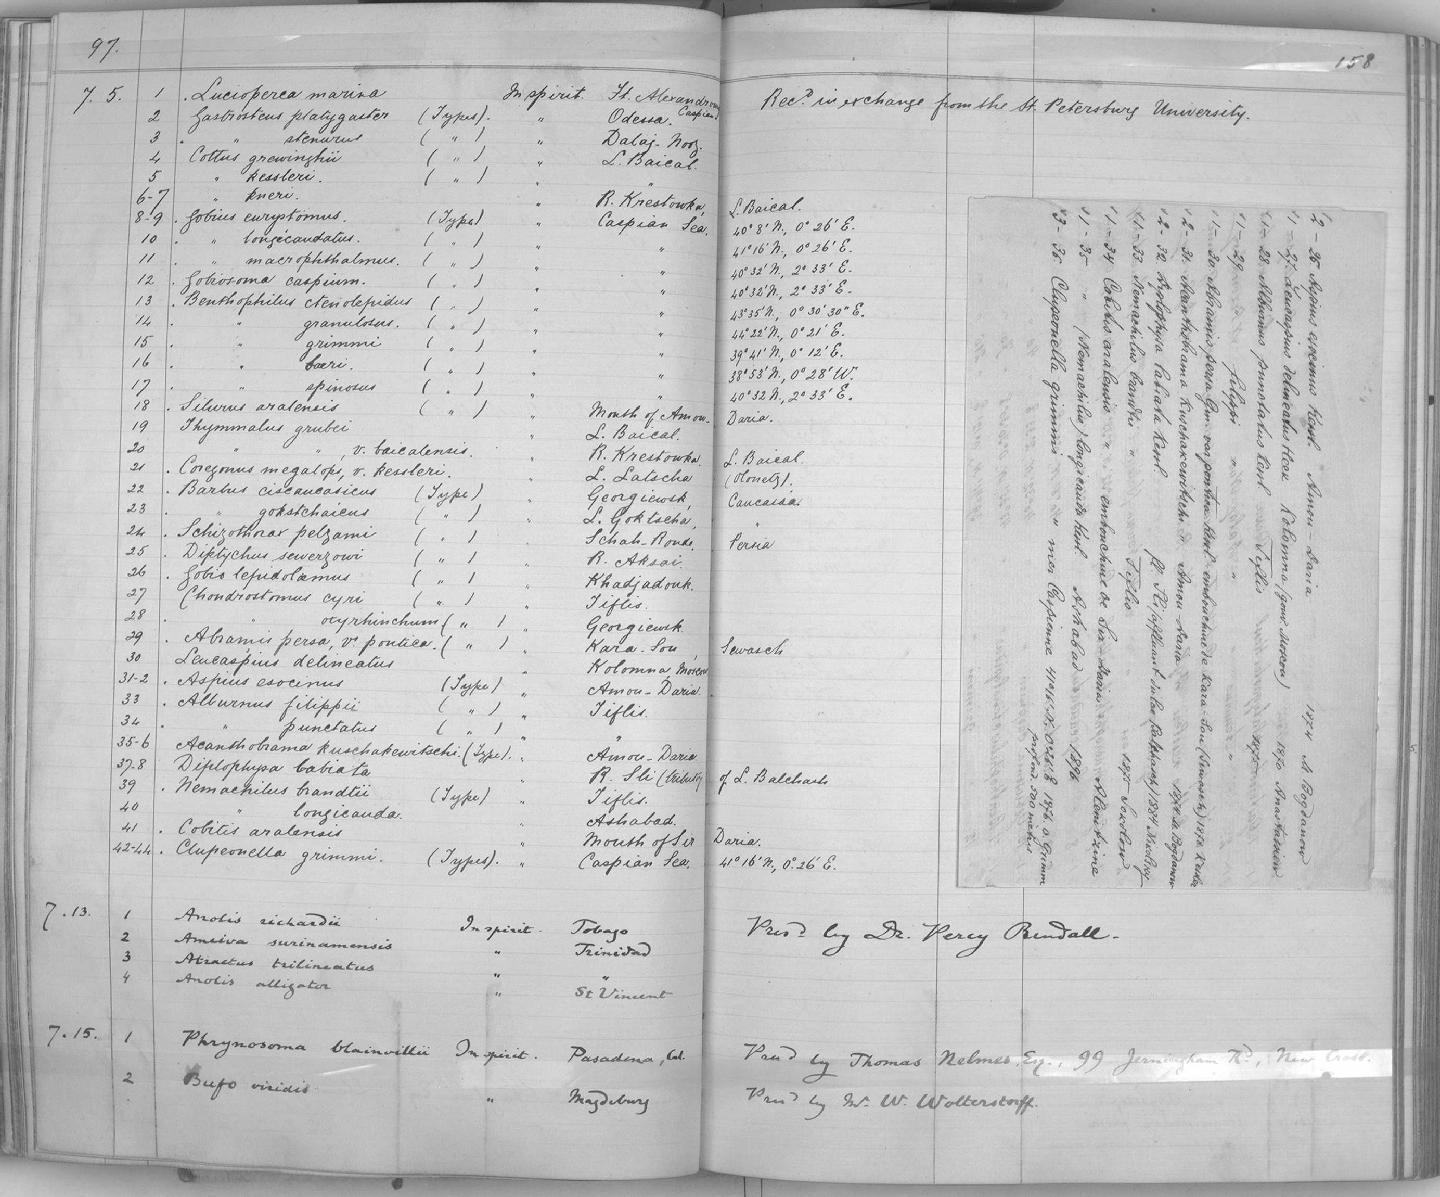 97.
158
7. 5. 1 . Lucioperca marina In spirit. Ft. Alexandrow Caspian Rec.d in exchange from the St. Petersburg University.
2 Gastrosteus platygaster (Types). " Odessa.
3 . " stenurus ( " ) " Dalaj-Noor.
4 Cottus grewinghii ( " ) " L. Baical.
5 " kessleri. ( " ) " "
6-7 " kneri. " R. Krestowka, L. Baical.
8-9 . Gobius eurystomus. (Type) " Caspian Sea. 40° 8' N., 0° 26' E.
10 . " longecaudatus. ( " ) " " 41° 16' N., 0° 26' E.
11 . " macrophthalmus. ( " ) " " 40° 32' N., 2° 33' E.
12 . Gobiosoma caspium. ( " ) " " 40° 32' N., 2° 33' E.
13 . Benthophilus ctenolepidus ( " ) " " 43° 35' N., 0° 30' 30" E.
14 . " granulosus. ( " ) " " 44° 22' N., 0° 21' E.
15 . " grimmi ( " ) " " 39° 41' N., 0° 12' E.
16 . " baeri. ( " ) " " 38° 53' N., 0° 28' W.
17 . " spinosus ( " ) " " 40° 32 N., 2° 33' E.
18 . Silurus aralensis ( " ) " Mouth of Amou- Daria.
19 Thymmalus grubei " L. Baical.
20 " " , v. baicalensis. " R. Krestowka L. Baical.
21 . Coregonus megalops, v. kessleri. " L. Latscha (Olonetz).
22 . Barbus ciscaucasicus (Type) " Georgiewsk, Caucasia.
23 . " gokstchaicus ( " ) " L. Goktscha, "
24 . Schizothorax pelzami ( " ) " Schah-Roude, Persia
25 . Diptychus sewerzowi ( " ) " R. Aksai.
26 . Gobio lepidolaemus ( " ) " Khadjadouk.
27 Chondrostomus cyri ( " ) " Tiflis.
28 . " oxyrhinchum ( " ) " Georgiewsk
29 . Abramis persa, v. pontica. ( " ) " Kara-Sou, Sewasch
30 Leucaspius delineatus " Kolomna, Moscow
31-2 . Aspius esocinus (Type) " Amou-Daria.
33 . Alburnus filippii ( " ) " Tiflis.
34 . " punctatus ( " ) " "
35-6 . Acanthobrama kuschakewitschi (Type). " Amou-Daria
37-8 Diplophysa labiata " R. Sli (tributary of L. Balchash
39 . Nemachilus brandtii (Type) " Tiflis.
40 " longicauda. " Ashabad.
41 . Cobitis aralensis " Mouth of Sir Daria.
42-44 . Clupeonella grimmi. (Types). " Caspian Sea. 41° 16' N., 0°. 26' E.
2 - 25 Aspius esocinus Kessl Amou-Daria 1874 M Bogdanow
1 - 27 Leucaspius delineatus Heck Kolomna (gouv. Moscou)
1 - 28 Alburnus punctatus Kessl Tiflis
1 - 29 " filippi " "
1 - 30 Abramis persa Gm var pontica Kessl embouchure de Kara-Sou (Sewasch)
2 - 31 Acanthobrama Kuschakewitschi " Amou-Daria Bogdanow
2 - 32 Diplophysa labiata Kessl fl. Sli (affluant du lac Balchasch) 1884
1 - 33 Nemachilus brandti " Tiflis 1875 Sokolow
1 - 34 Cobitis aralensis " embouchure de Sir-Daria
1 - 35 " (Nemachilus) longicauda Kessl Ashabad 1896
3 - 36 Clupeonella grimmi " mer Caspienne 41° 16' N. 0° 26' E 1876 O Grimm
7.13. 1 Anolis richardii In spirit. Tobago Pres.d by Dr. Percy Rendall.
2 Ameiva surinamensis " Trinidad
3 Atractus trilineatus "
4 Anolis alligator " St Vincent
7.15. 1 Phrynosoma blainvillii In spirit. Pasadena, Cal. Pres.d by Thomas Nelmes, Esq., 99 Jerningham Rd, New Cross.
2 Bufo viridis " Magdeburg Pres.d by Mr. W. Wolterstorff.